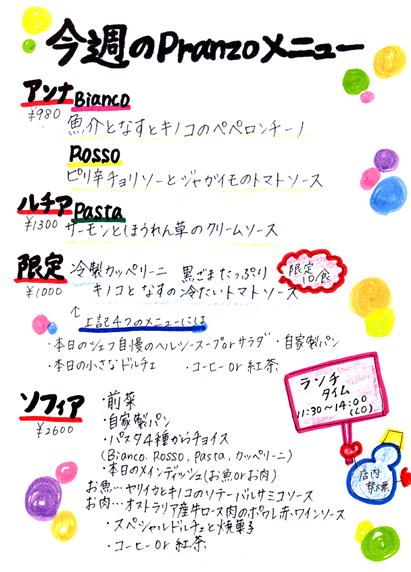 今週のPranzoメニュー
アンナ Bianco
¥980
魚介となすとキノコのペペロンチーノ
Rosso
ピリ辛チョリソーとジャガイモのトマトソース
ルチア Pasta
¥1300 サーモンとほうれん草のクリームソース
限定 冷製カッペリーニ 黒ごまたっぷり
¥1000 キノコとなすの冷たいトマトソース
限定10食
↑上記4つのメニューには
・本日のシェフ自慢のヘルシースープorサラダ ・自家製パン
・本日の小さなドルチェ ・コーヒーor紅茶
ソフィア
¥2600
・前菜
・自家製パン
・パスタ4種からチョイス
(Bianco, Rosso, Pasta, カッペリーニ)
・本日のメインディッシュ(お魚orお肉)
お魚…ヤリイカとキノコのソテーバルサミコソース
お肉…オーストラリア産牛ロース肉のポワレ赤ワインソース
・スペシャルドルチェと焼菓子
・コーヒーor紅茶
ランチ
タイム
11:30~14:00
(LO)
店内
禁煙